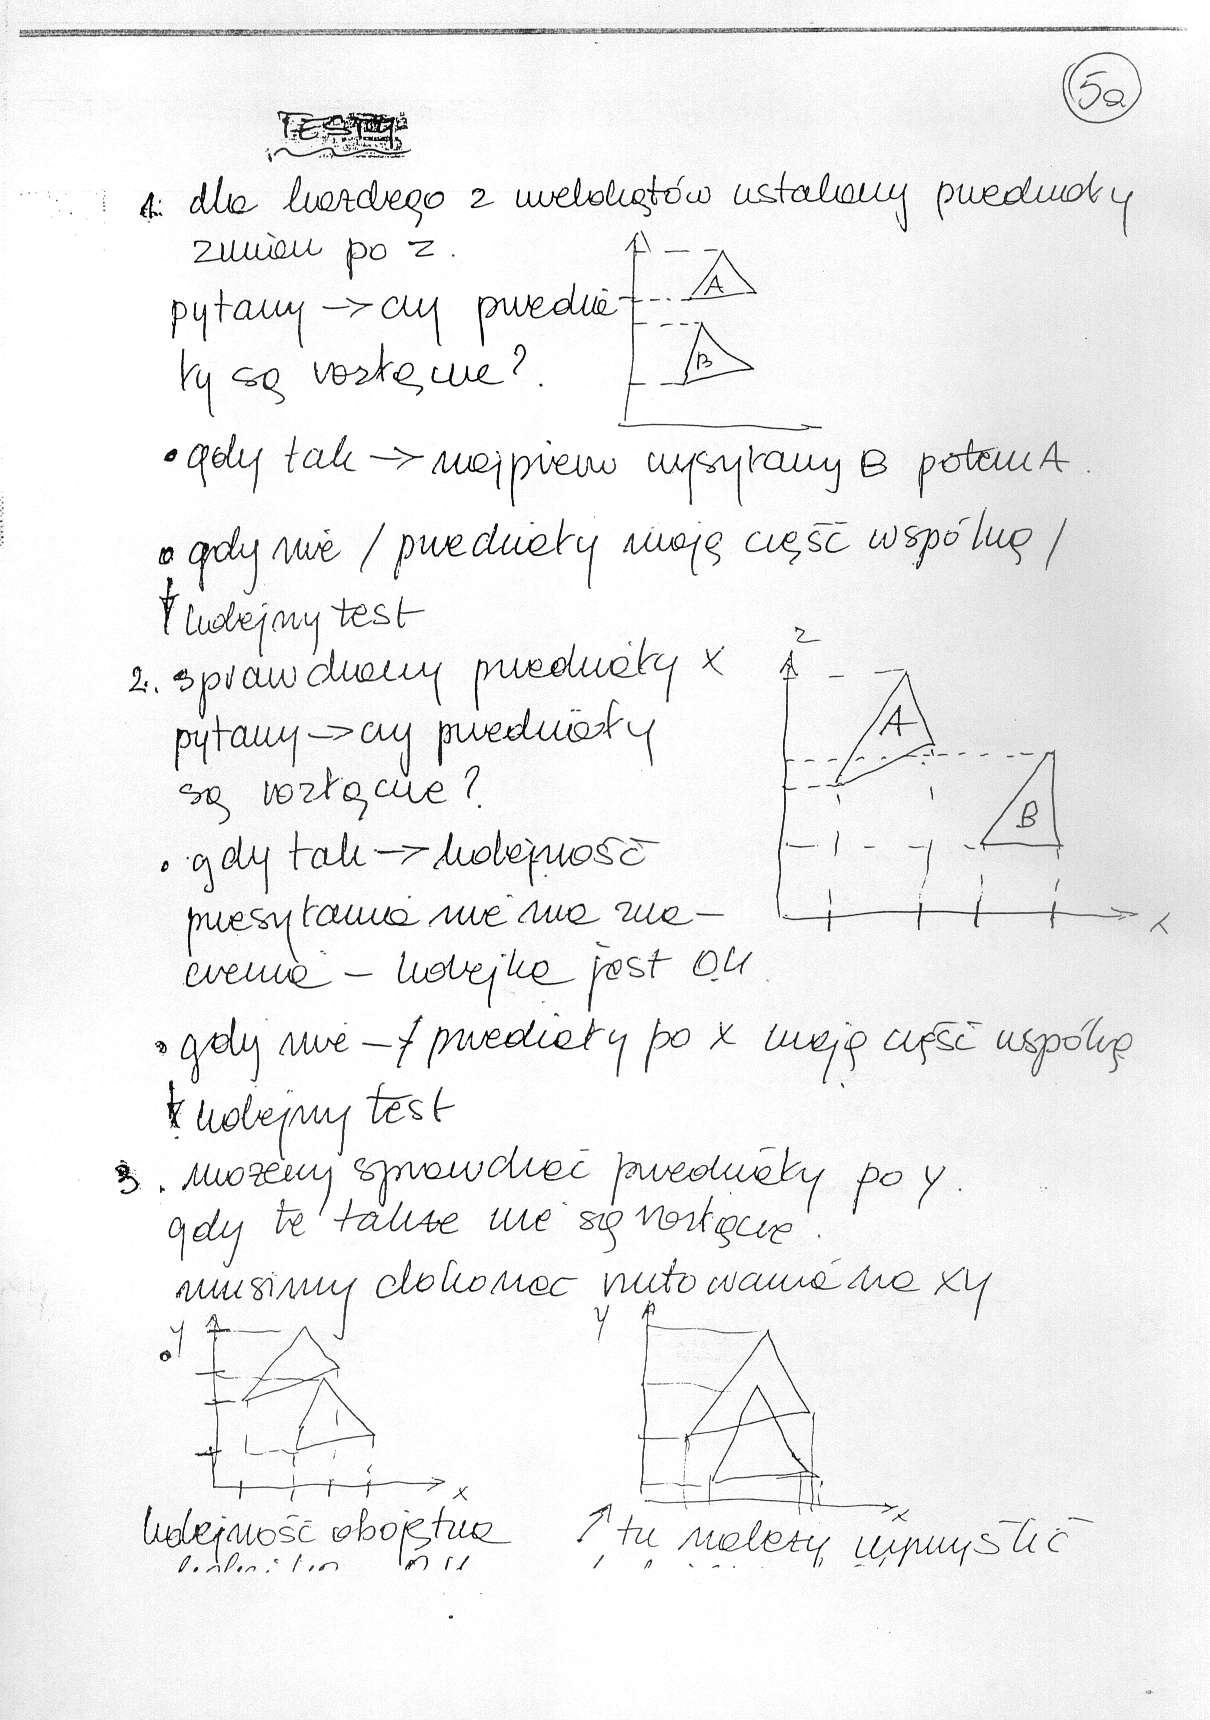 5a
TESTY
1. dla każdego z wielokątów ustalamy przedziały
zmian po z.
pytamy → czy przedzia
ły są rozłączne?
A
B
• gdy tak → najpierw wysyłamy B potem A.
• gdy nie / przedziały mają część wspólną /
kolejny test
2. sprawdzamy przedziały x
pytamy → czy przedziały
są rozłączne?
z
A
B
x
• gdy tak → kolejność
przesyłania nie ma zna-
czenia – kolejka jest OK
• gdy nie – / przedziały po x mają część wspólną
kolejny test
3. możemy sprawdzać przedziały po y.
gdy te także nie są rozłączne.
musimy dokonać rzutowania na xy
y
x
y
x
kolejność obojętna
↑ tu należy wymyślić